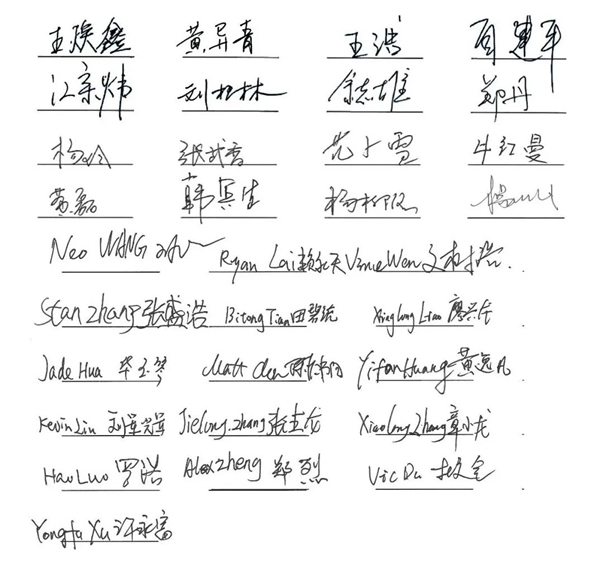 王焕鑫 黄异青 王涛 司建军
江宗炜 刘松林 余志雄 郑丹
杨 张武香 范小雪 牛红曼
黄磊 韩冥生 杨柳
Neo WANG Ryan Lai 赖永天 Vence Wen 文
Stan Zhang 张盛浩 Bitong Tian 田碧统 Xinglong Liao 廖兴龙
Jade Hua 华玉琴 Matt Chen 陈 Yifan Huang 黄逸凡
Kevin Liu 刘军 Jielong Zhang 张杰龙 Xiaolong Zhang 章小龙
Hao Luo 罗浩 Alex Zheng 郑烈 Vic Du 杜
Yongfu Xu 许永富